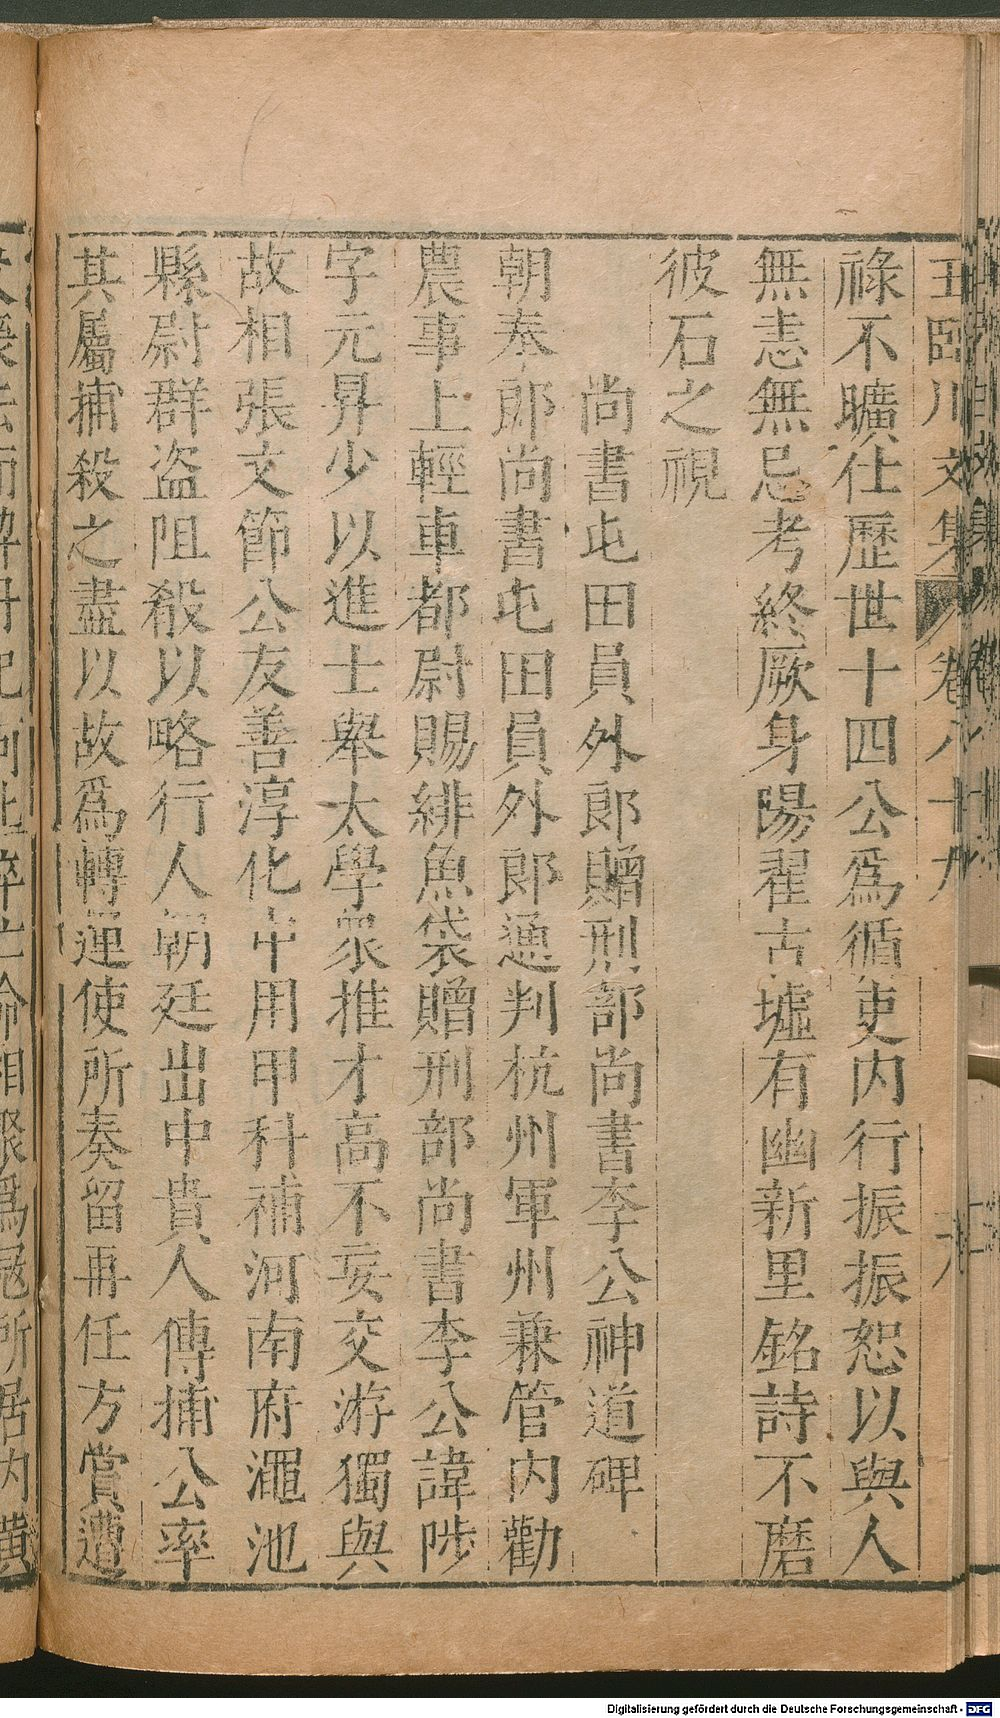 王臨川文集 卷八十九 十九
祿不曠仕歷世十四公爲循吏内行振振恕以與人
無恚無忌考終厥身陽翟古墟有幽新里銘詩不磨
彼石之視
尚書屯田員外郎贈刑部尚書李公神道碑
朝奉郎尚書屯田員外郎通判杭州軍州兼管内勸
農事上輕車都尉賜緋魚袋贈刑部尚書李公諱陟
字元昇少以進士舉太學衆推才高不妄交游獨與
故相張文節公友善淳化中用甲科補河南府澠池
縣尉群盗阻殺以略行人朝廷出中貴人傳捕公率
其屬捕殺之盡以故爲轉運使所奏留再任方賞遭
Digitalisierung gefördert durch die Deutsche Forschungsgemeinschaft - DFG